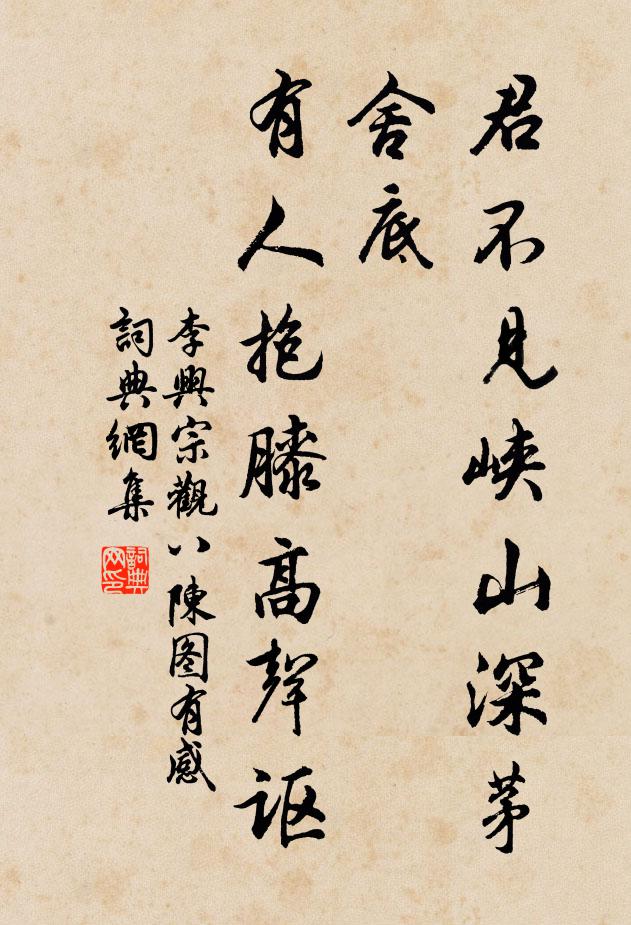 君不見峽山深茅
舍底
有人抱膝高聲謳
李興宗觀八陳图有感
詞典網集
詞典网印